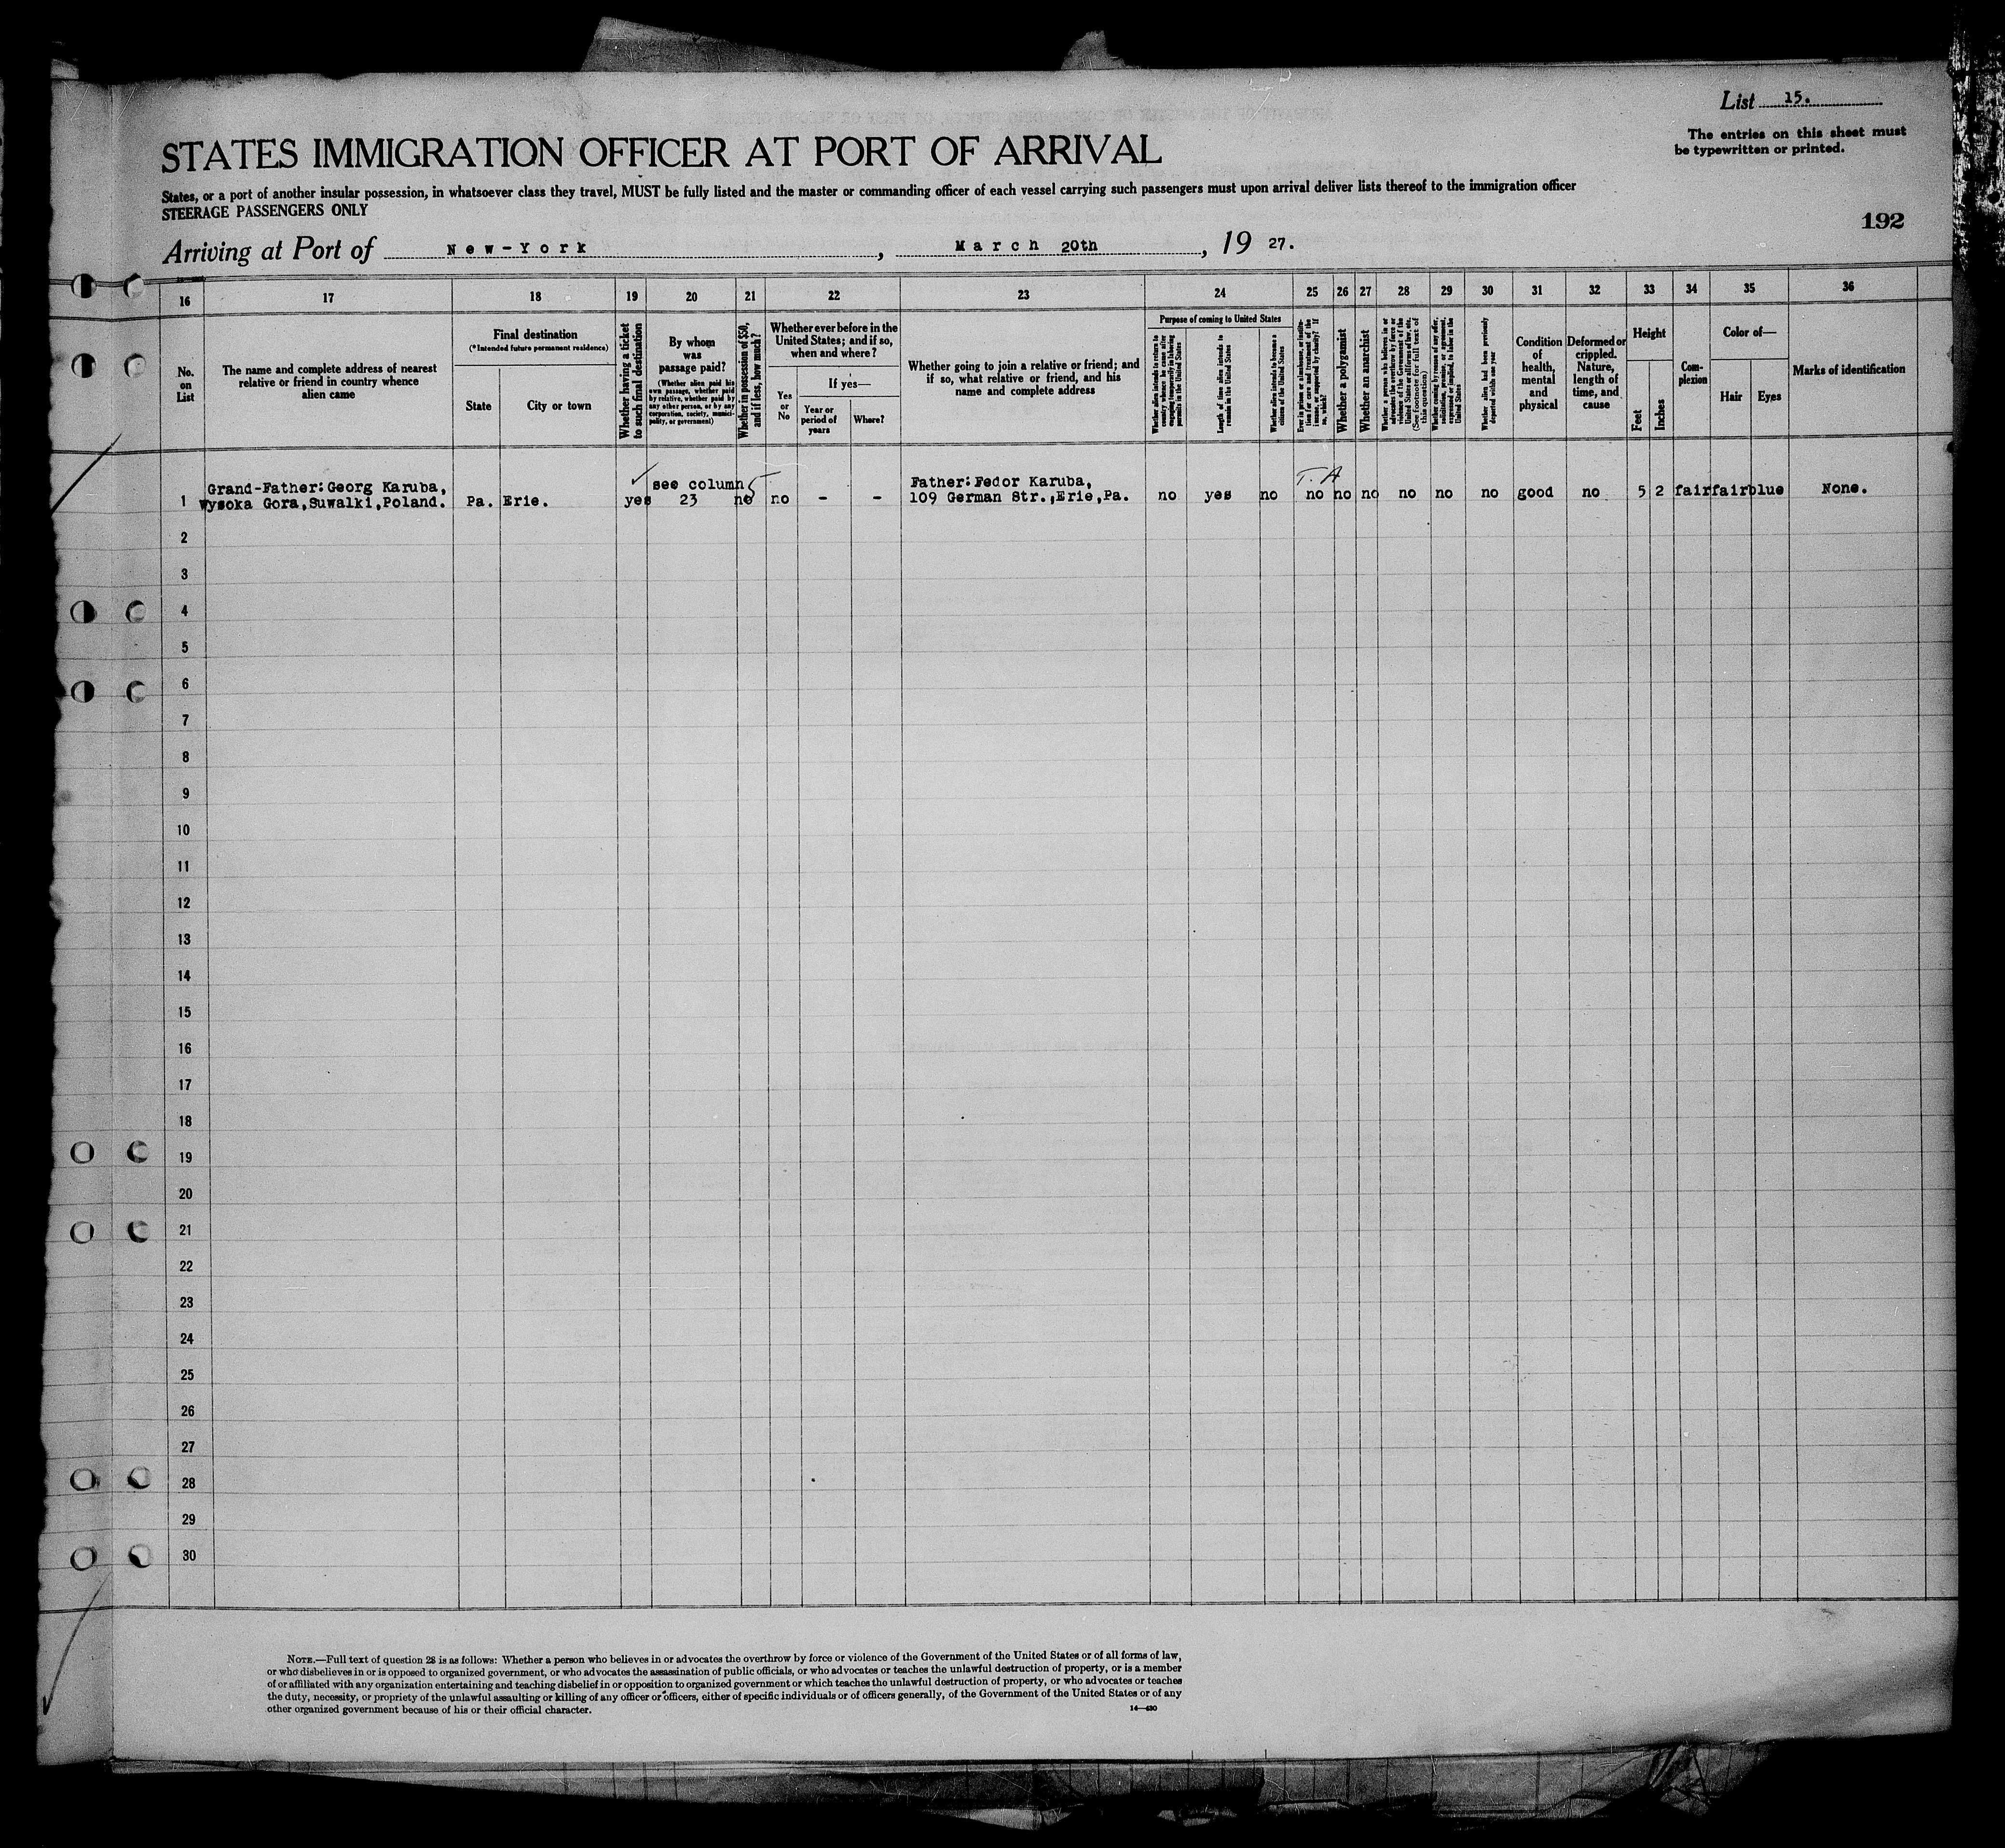 List 15.
The entries on this sheet must
be typewritten or printed.
STATES IMMIGRATION OFFICER AT PORT OF ARRIVAL
States, or a port of another insular possession, in whatsoever class they travel, MUST be fully listed and the master or commanding officer of each vessel carrying such passengers must upon arrival deliver lists thereof to the immigration officer
STEERAGE PASSENGERS ONLY
192
Arriving at Port of New-York, March 20th, 19 27.
16 17 18 19 20 21 22 23 24 25 26 27 28 29 30 31 32 33 34 35 36
No.
on
List
The name and complete address of nearest
relative or friend in country whence
alien came
Final destination
(*Intended future permanent residence)
State
City or town
Whether having a ticket
to such final destination
By whom
was
passage paid?
(Whether alien paid his
own passage, whether paid
by relative, whether paid by
any other person, or by any
corporation, society, munici-
pality, or government)
Whether in possession of $50,
and if less, how much?
Whether ever before in the
United States; and if so,
when and where?
Yes
or
No
If yes—
Year or
period of
years
Where?
Whether going to join a relative or friend; and
if so, what relative or friend, and his
name and complete address
Purpose of coming to United States
Whether alien intends to return to
country whence he came after
engaging temporarily in laboring
pursuits in the United States
Length of time alien intends to
remain in the United States
Whether alien intends to become a
citizen of the United States
Ever in prison or almshouse, or institu-
tion for care and treatment of the
insane, or supported by charity? If
so, which?
Whether a polygamist
Whether an anarchist
Whether a person who believes in or
advocates the overthrow by force or
violence of the Government of the
United States or all forms of law, etc.
(See footnote for full text of
this question)
Whether coming by reason of any offer,
solicitation, promise, or agreement,
expressed or implied, to labor in the
United States
Whether alien had been previously
deported within one year
Condition
of
health,
mental
and
physical
Deformed or
crippled.
Nature,
length of
time, and
cause
Height
Feet
Inches
Com-
plexion
Color of—
Hair
Eyes
Marks of identification
T. A
Grand-Father:Georg Karuba, see column 5 Father:Fedor Karuba,
1 Wysoka Gora,Suwalki,Poland. Pa. Erie. yes 23 no no - - 109 German Str.,Erie,Pa. no yes no no no no no no no good no 5 2 fair fair blue None.
2
3
4
5
6
7
8
9
10
11
12
13
14
15
16
17
18
19
20
21
22
23
24
25
26
27
28
29
30
NOTE.—Full text of question 28 is as follows: Whether a person who believes in or advocates the overthrow by force or violence of the Government of the United States or of all forms of law,
or who disbelieves in or is opposed to organized government, or who advocates the assassination of public officials, or who advocates or teaches the unlawful destruction of property, or is a member
of or affiliated with any organization entertaining and teaching disbelief in or opposition to organized government or which teaches the unlawful destruction of property, or who advocates or teaches
the duty, necessity, or propriety of the unlawful assaulting or killing of any officer or officers, either of specific individuals or of officers generally, of the Government of the United States or of any
other organized government because of his or their official character.
14—430